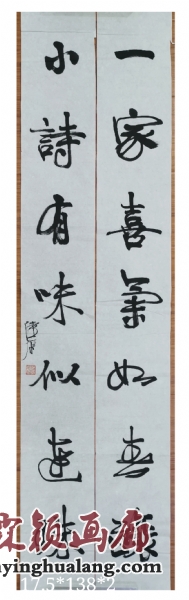 一家喜氣如春釀
小詩有味似連珠
画廊
nyinghualang.com
17.5*138*2